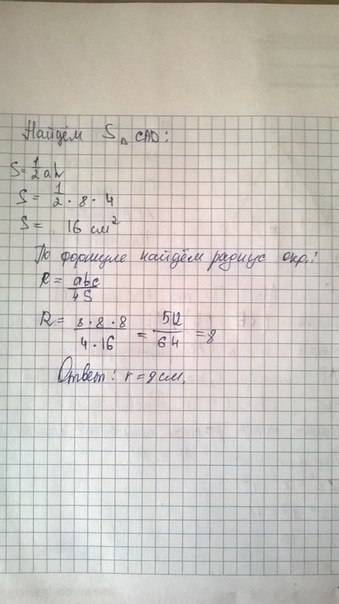 Найдём S△ CAD:
S=½ah
S= ½ · 8 · 4
S= 16 см²
По формуле найдём радиус окр.:
R= abc/4S
R= 8·8·8/4·16 = 512/64 =8
Ответ: r=8см.